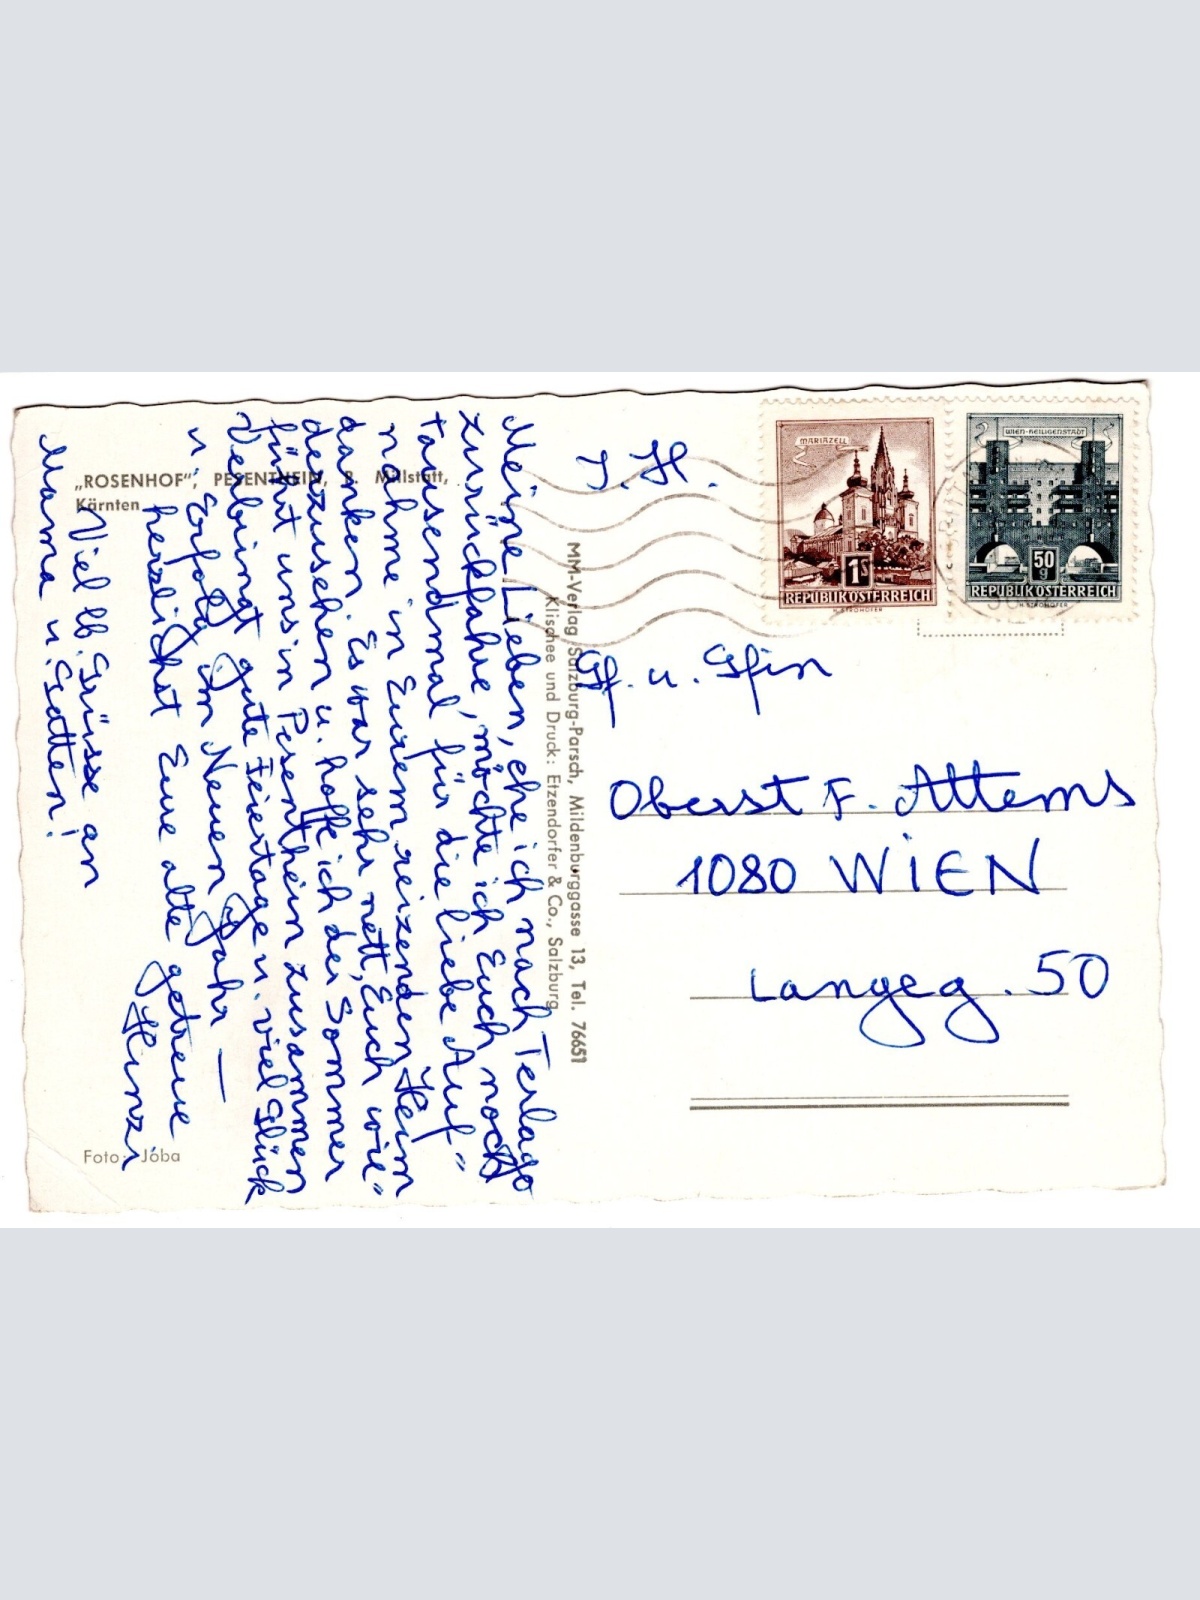 „ROSENHOF", PESENTHEIN, B. Millstatt,
Kärnten
Meine Lieben, ehe ich nach Terlago
zurückfahre, möchte ich Euch noch
tausendmal für die liebe Auf"
nahme in Eurem reizenden Heim
danken. Es war sehr nett, Euch wie"
derzusehen u. hoffe ich der Sommer
führt uns in Pesenthein zusammen
Verbringt gute Feiertage u. viel Glück
u. Erfolg im Neuen Jahr —
herzlichst Eure alte getreue
Hinzi
Viel lb. Grüsse an
Mama u. Gatten!
Foto: Jóba
MM-Verlag Salzburg-Parsch, Mildenburggasse 13, Tel. 76651
Klischee und Druck: Etzendorfer & Co., Salzburg
MARIAZELL
1S
REPUBLIK ÖSTERREICH
H. STROHOFER
WIEN-HEILIGENSTADT
50
g
REPUBLIK ÖSTERREICH
H. STROHOFER
I. H.
Gf. u. Gfin
Oberst F. Attems
1080 WIEN
Langeg. 50